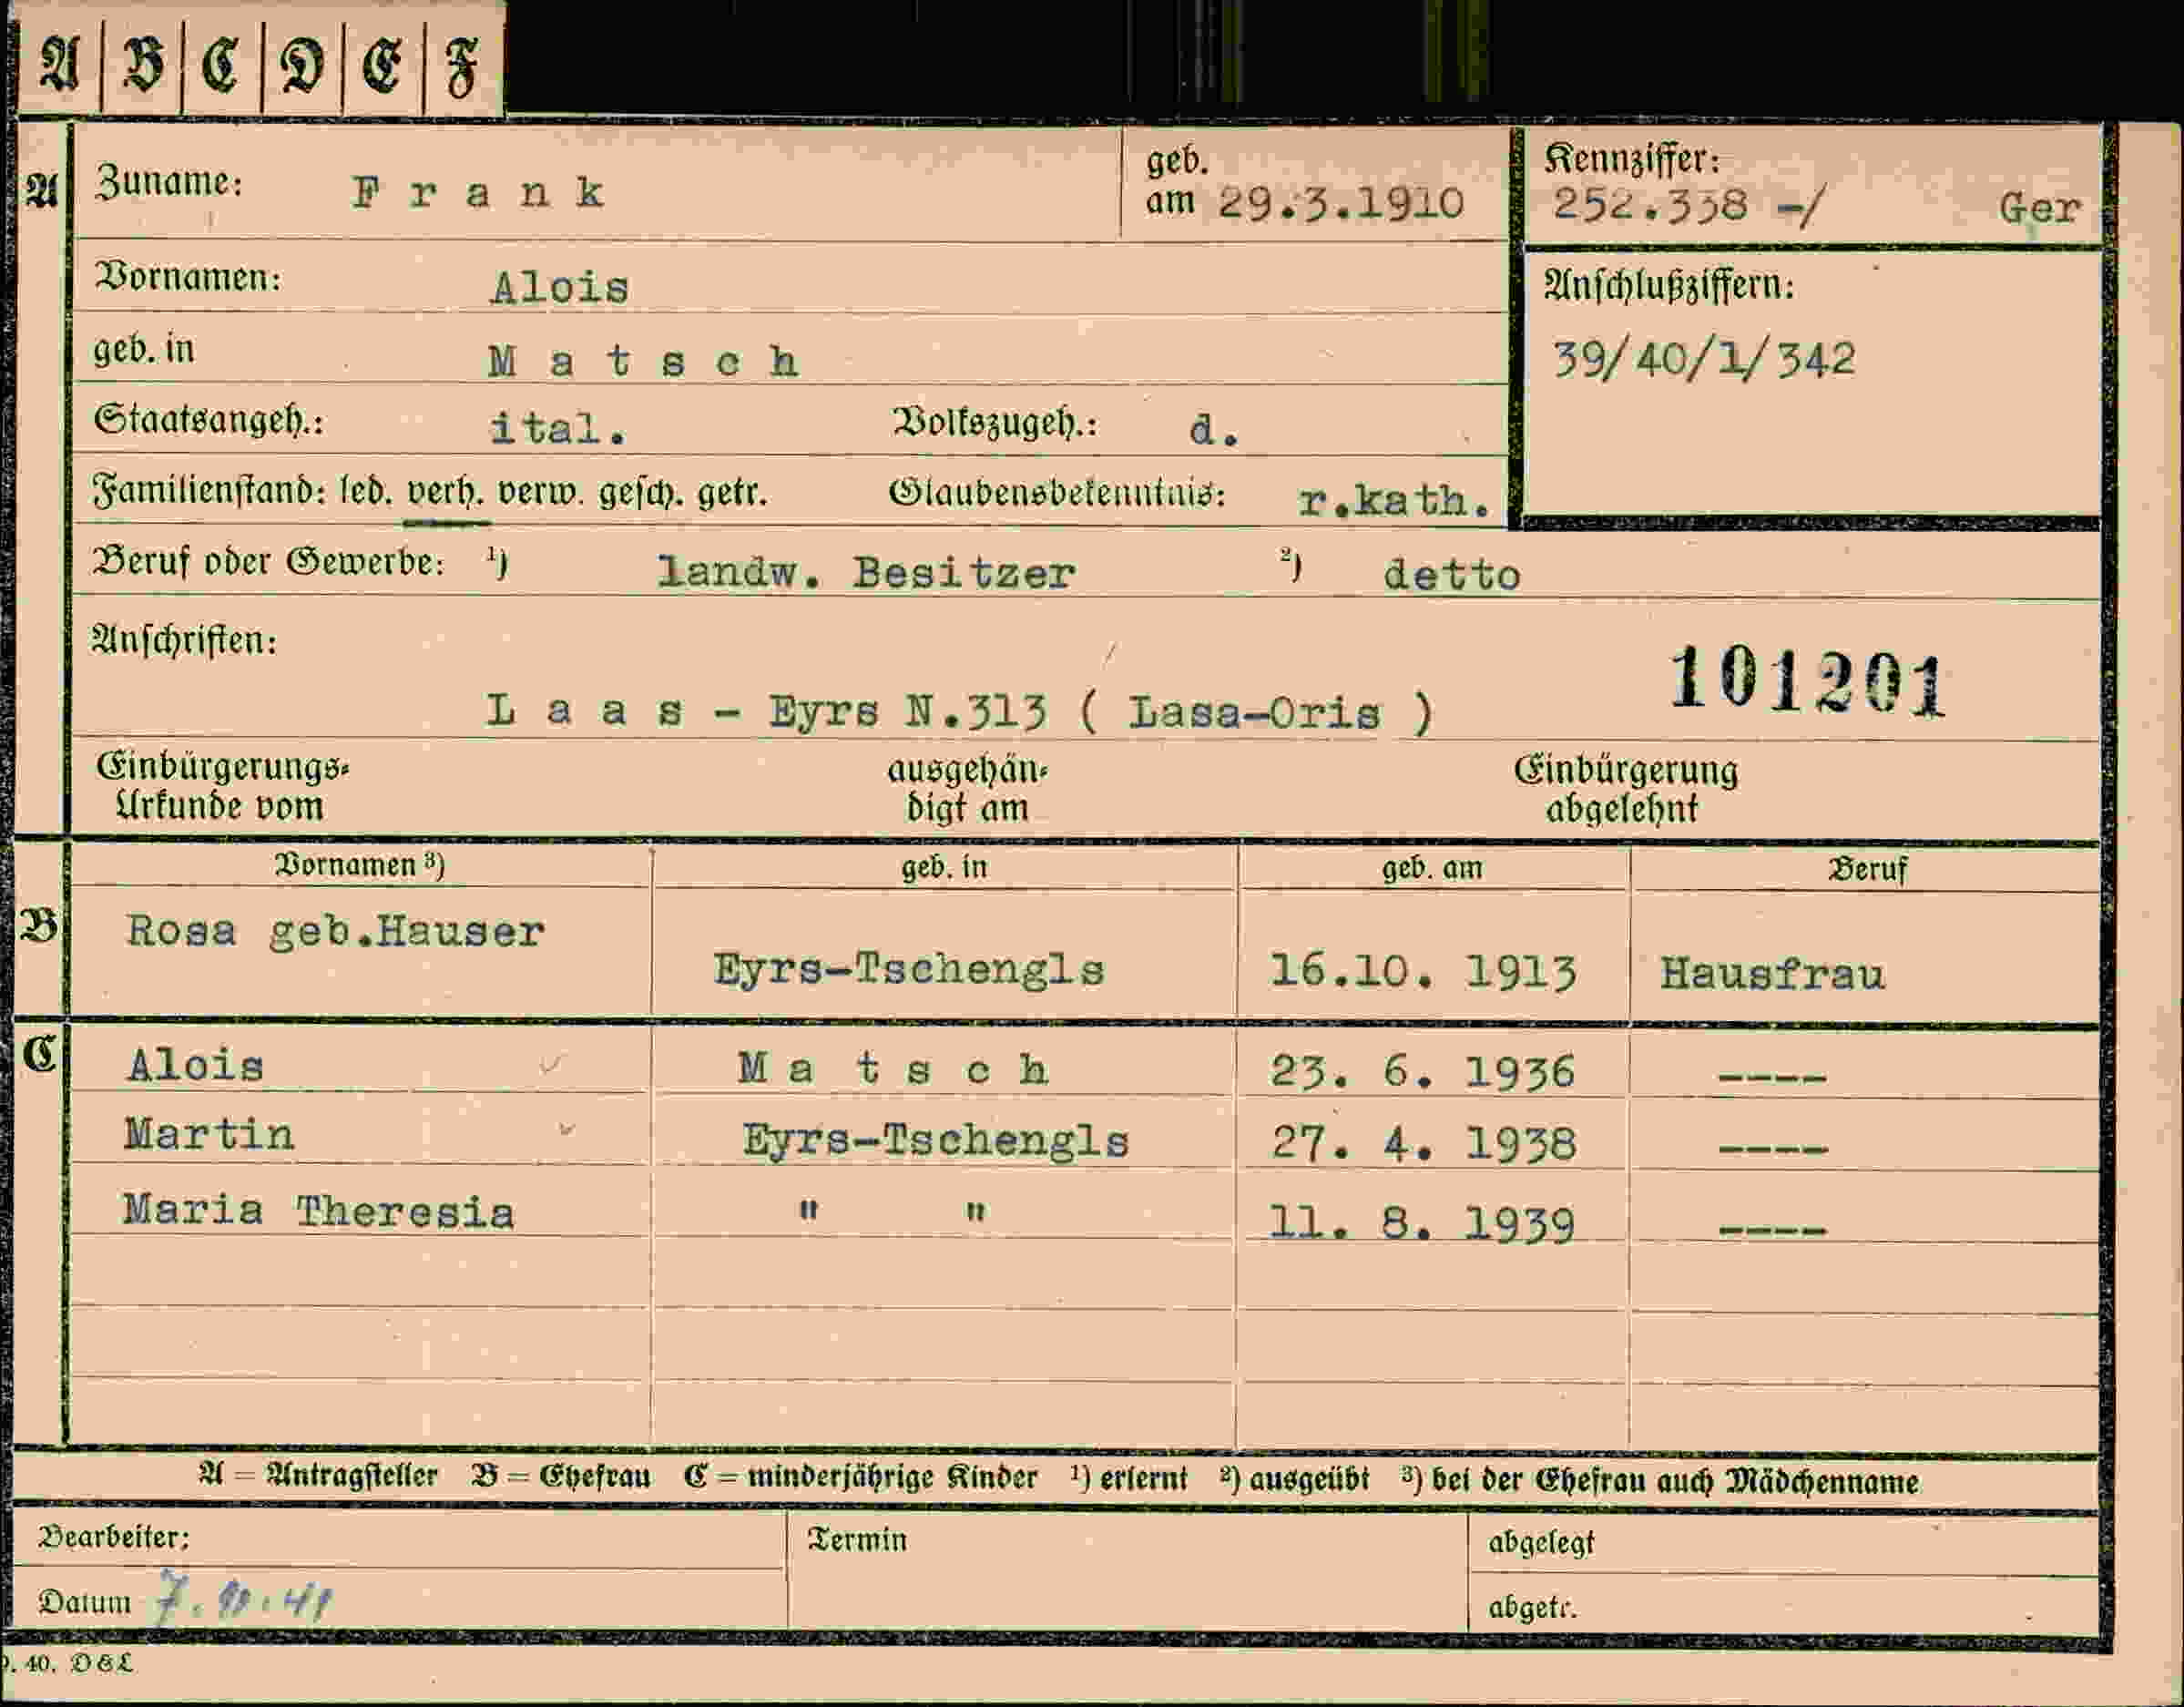 A B C D E F
A Zuname: Frank geb. am 29.3.1910 Kennziffer: 252.338 -/ Ger
Vornamen: Alois Anschlußziffern:
geb. in Matsch 39/40/1/342
Staatsangeh.: ital. Volkszugeh.: d.
Familienstand: led. verh. verw. gesch. getr. Glaubensbekenntnis: r.kath.
Beruf oder Gewerbe: ¹) landw. Besitzer ²) detto
Anschriften: 101201
Laas - Eyrs N.313 ( Lasa-Oris )
Einbürgerungs- ausgehän- Einbürgerung
Urkunde vom digt am abgelehnt
Vornamen ³) geb. in geb. am Beruf
B Rosa geb.Hauser Eyrs-Tschengls 16.10. 1913 Hausfrau
C Alois Matsch 23. 6. 1936 ----
Martin Eyrs-Tschengls 27. 4. 1938 ----
Maria Theresia " " 11. 8. 1939 ----
A = Antragsteller B = Ehefrau C = minderjährige Kinder ¹) erlernt ²) ausgeübt ³) bei der Ehefrau auch Mädchenname
Bearbeiter: Termin abgelegt
Datum abgetr.
40. D&L